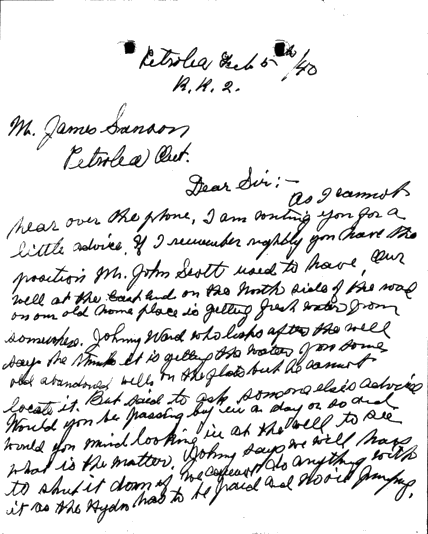 Petrolea Feb 5th/40
R.R.2.
Mr. James Sanson
Petrolea Ont.
Dear Sir:-
As I cannot
hear over the phone, I am writing you for a
little advice. If I remember rightly you have the
position Mr. John Scott used to have, Our
well at the East end on the North side of the road
on our old home place is getting fresh water from
somewhere. Johny Ward who looks after the well
says he thinks it is getting the water from some
old abandoned wells on the flats but cannot
locate it. But said to ask someone else's advice
Would you be passing by in a day or so and
would you mind looking in at the well to see
what is the matter. Johny says we will have
to shut it down if we cannot do anything with
it as the Hydro has to be paid and no oil pumping.